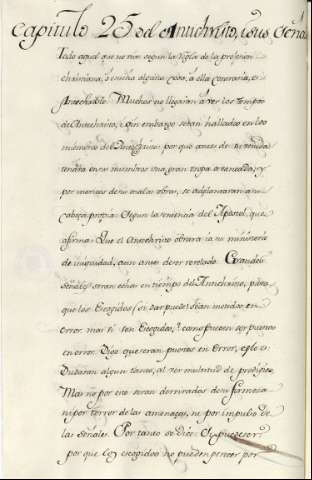 Capitulo 25 del Antechristo, i sus Señal
Todo aquel que no vive segun la regla de la profesion
christiana, ó enseña alguna cosa, á ella contraria, es
Antechristo. Muchos no llegarán á ver los tiempos
de Antechristo, i sin embargo serán hallados en los
miembros del Antechristo. por que antes de su venida
tendrá en sus miembros una gran tropa
por meritos de su mala obra, se adelantaran a su
cabeza propia. Segun la sentencia del Apostol, que
afirma: Que el Antechristo obrara ia su ministerio
de iniquidad, aun antes de ser revelado. Grandes
Señales seran echas en tiempo del Antechristo, para
que los Escogidos (si ser puede) sean metidos en
error. mas si son Escogidos, como pueden ser puestos
en error. Dize que seran puestos en Error, esto es
Dudaran algun tanto, al ver multitud de prodigios,
Mas no por eso seran derrivados de su firmeza
ni por terror de las amenazas, ni por impulso de
las señales. Por tanto se dice: si pudiese ser:
por que los escogidos no pueden perecer por